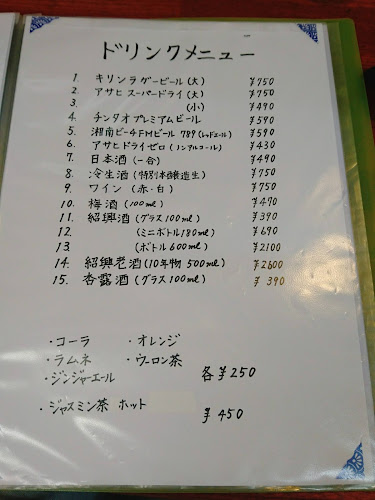 ドリンクメニュー
1. キリンラガービール(大) ¥750
2. アサヒスーパードライ(大) ¥750
3. (小) ¥490
4. チンタオプレミアムビール ¥590
5. 湘南ビーチFMビール 789(レッドエール) ¥590
6. アサヒドライゼロ(ノンアルコール) ¥430
7. 日本酒(一合) ¥490
8. 冷生酒(特別本醸造生) ¥750
9. ワイン(赤・白) ¥750
10. 梅酒(100ml) ¥470
11. 紹興酒(グラス100ml) ¥390
12. (ミニボトル180ml) ¥690
13. (ボトル600ml) ¥2100
14. 紹興老酒(10年物 500ml) ¥2600
15. 杏露酒(グラス100ml) ¥390
・コーラ ・オレンジ
・ラムネ ・ウーロン茶
・ジンジャーエール 各¥250
・ジャスミン茶 ホット ¥450